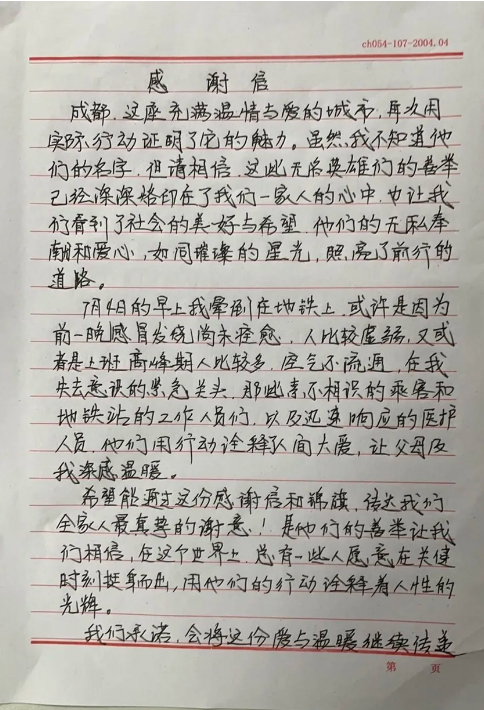 ch054-107-2004.04
感谢信
成都，这座充满温情与爱的城市，再次用
实际行动证明了它的魅力。虽然我不知道他
们的名字，但请相信，这些无名英雄们的善举
已经深深烙印在了我们一家人的心中，也让我
们看到了社会的美好与希望，他们的无私奉
献和爱心，如同璀璨的星光，照亮了前行的
道路。
7月4日的早上我晕倒在地铁上，或许是因为
前一晚感冒发烧尚未痊愈，人比较虚弱，又或
者是上班高峰期人比较多，空气不流通，在我
失去意识的紧急关头，那些素不相识的乘客和
地铁站的工作人员们，以及迅速响应的医护
人员，他们用行动诠释人间大爱，让父母及
我深感温暖。
希望能通过这份感谢信和锦旗，传达我们
全家人最真挚的谢意！是他们的善举让我
们相信，在这个世界上，总有一些人愿意在关键
时刻挺身而出，用他们的行动诠释着人性的
光辉。
我们承诺，会将这份爱与温暖继续传递
第 页